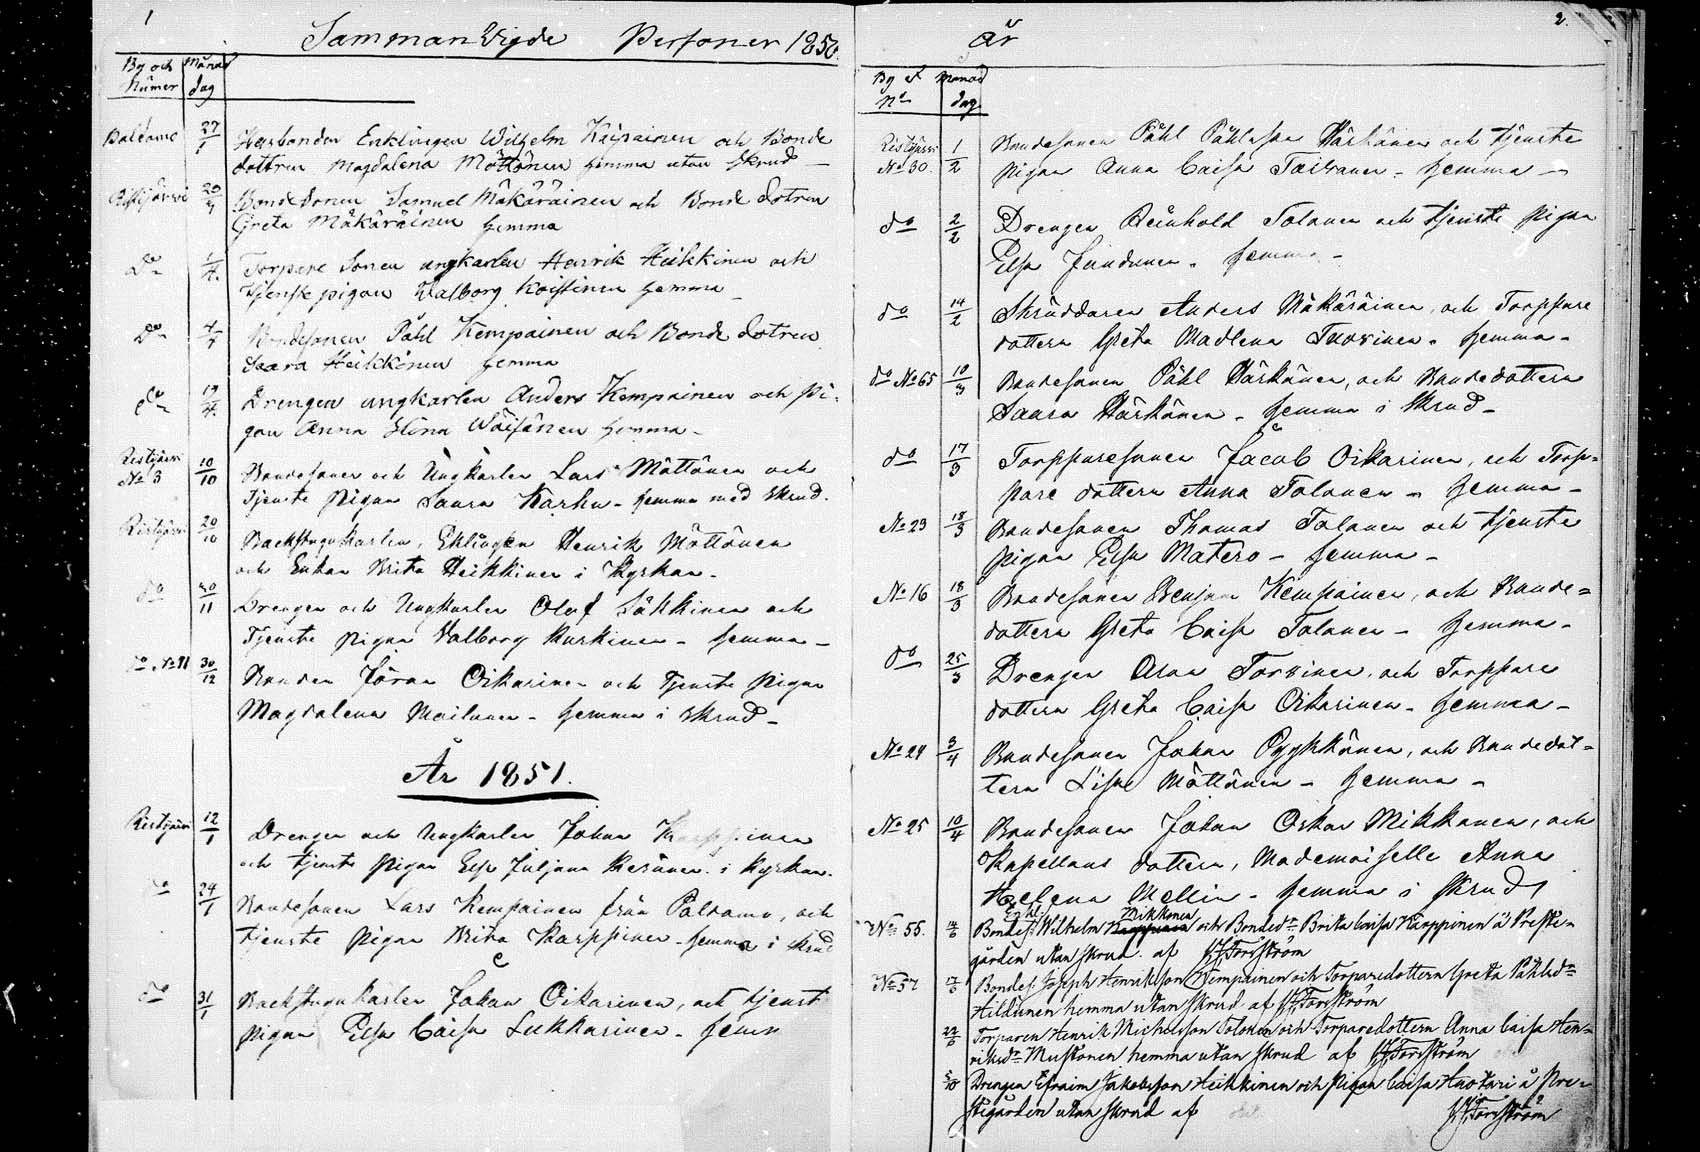 1
Samman Vigde Personer 1850
By och Månad
Numer dag
Paldamo 27/1 Husbonden Enklingen Wilhelm Keinäinen och Bonde
dottren Magdalena Möttönen hemma utan skrud
Ristijärvi 20/4 Bonde Sonen Samuel Mäkäräinen och Bonde dotren
Greta Mäkäräinen hemma
Do /4 Torpare Sonen ungkarlen Henrik Heikkinen och
tjenste pigan Walborg Koistinen hemma
Do Bondesonen Påhl Kempainen och Bonde dotren
Saara Heikkinen hemma
Do 19/4 Drengen ungkarlen Anders Kempainen och Pi-
gan Anna Stina Wäisänen hemma
Ristijärvi 10/10 Bondesonen och Ungkarlen Lars Möttönen och
No 3 Tjenste Pigan Saara Karhu - hemma med skrud.
Ristijärvi 20/10 Backstugukarlen, Enklingen Henrik Möttönen
och Enkan Brita Heikkinen i Kyrkan.
do 30/11 Drengen och Ungkarlen Olof Säkkinen och
Tjenste pigan Valborg Kurkinen - hemma -
do No 11 30/12 Bonden Jöran Oikarinen och Tjenste Pigan
Magdalena Mailanen - hemma i skrud -
År 1851.
Ristijärvi 12/1 Drengen och Ungkarlen Johan
och tjenste Pigan Elsa Juljana Keränen i Kyrkan.
do 24/1 Bondesonen Lars Kempainen från Paldamo, och
tjenste Pigan Brita Karppinen - hemma i skrud
do 31/1 Backstugukarlen Johan Oikarinen, och tjenst
pigan Elsa Caisa Lukkarinen - hem
år
2.
By et Månad
No dag
Ristijärvi 1/2 Bondesonen Påhl Påhlsson Härkönen och tjenste
No 30. pigan Anna Caisa Taivanen - hemma -
do 2/2 Drengen Reinhold Tolonen och tjenste pigan
Elsa Jundunen - hemma -
do 14/2 Skräddaren Anders Mäkäräinen, och Torppare
dottern Greta Madlena Tuovinen - hemma -
do No 65 10/3 Bondesonen Påhl Härkönen, och Bondedottern
Saara Härkönen - hemma i skrud -
do 17/3 Torpparesonen Jacob Oikarinen, och Torp=
pare dottern Anna Tolonen - hemma -
No 23 18/3 Bondesonen Thomas Tolonen och tjenste
pigan Elsa Matero - hemma -
No 16 18/3 Bondesonen Benjam Kempainen, och Bonde=
dottern Greta Caisa Tolonen - hemma -
do 25/3 Drengen Aron Torvinen, och Torppare
dottern Greta Caisa Oikarinen - hemma -
No 24 3/4 Bondesonen Johan Pyykkönen, och Bondedot=
tern Lisa Möttönen - hemma -
No 25 10/4 Bondesonen Johan Oskar Mikkonen, och
Kapellans dottern, Mademoiselle Anna
Helena Mellin - hemma i skrud
Enkl Mikkonen
No 55. Bondes: Wilhelm och Bonded:r Brita Caisa Karppinen å Preste-
gården utan skrud af Forsström
No 57 Bondes: Joseph Henriksson Kempainen och Torparedottern Greta Påhlsdr
Hildunen hemma utan skrud af Forsström
22/6 Torparen Henrik Michelsson Tolonen och Torparedottern Anna Caisa Hen-
riksdr Mustonen hemma utan skrud af Forsström
5/10 Drengen Efraim Jakobsson Heikkinen och Pigan Caisa Huotari å Pre-
stgården utan skrud af Forsström